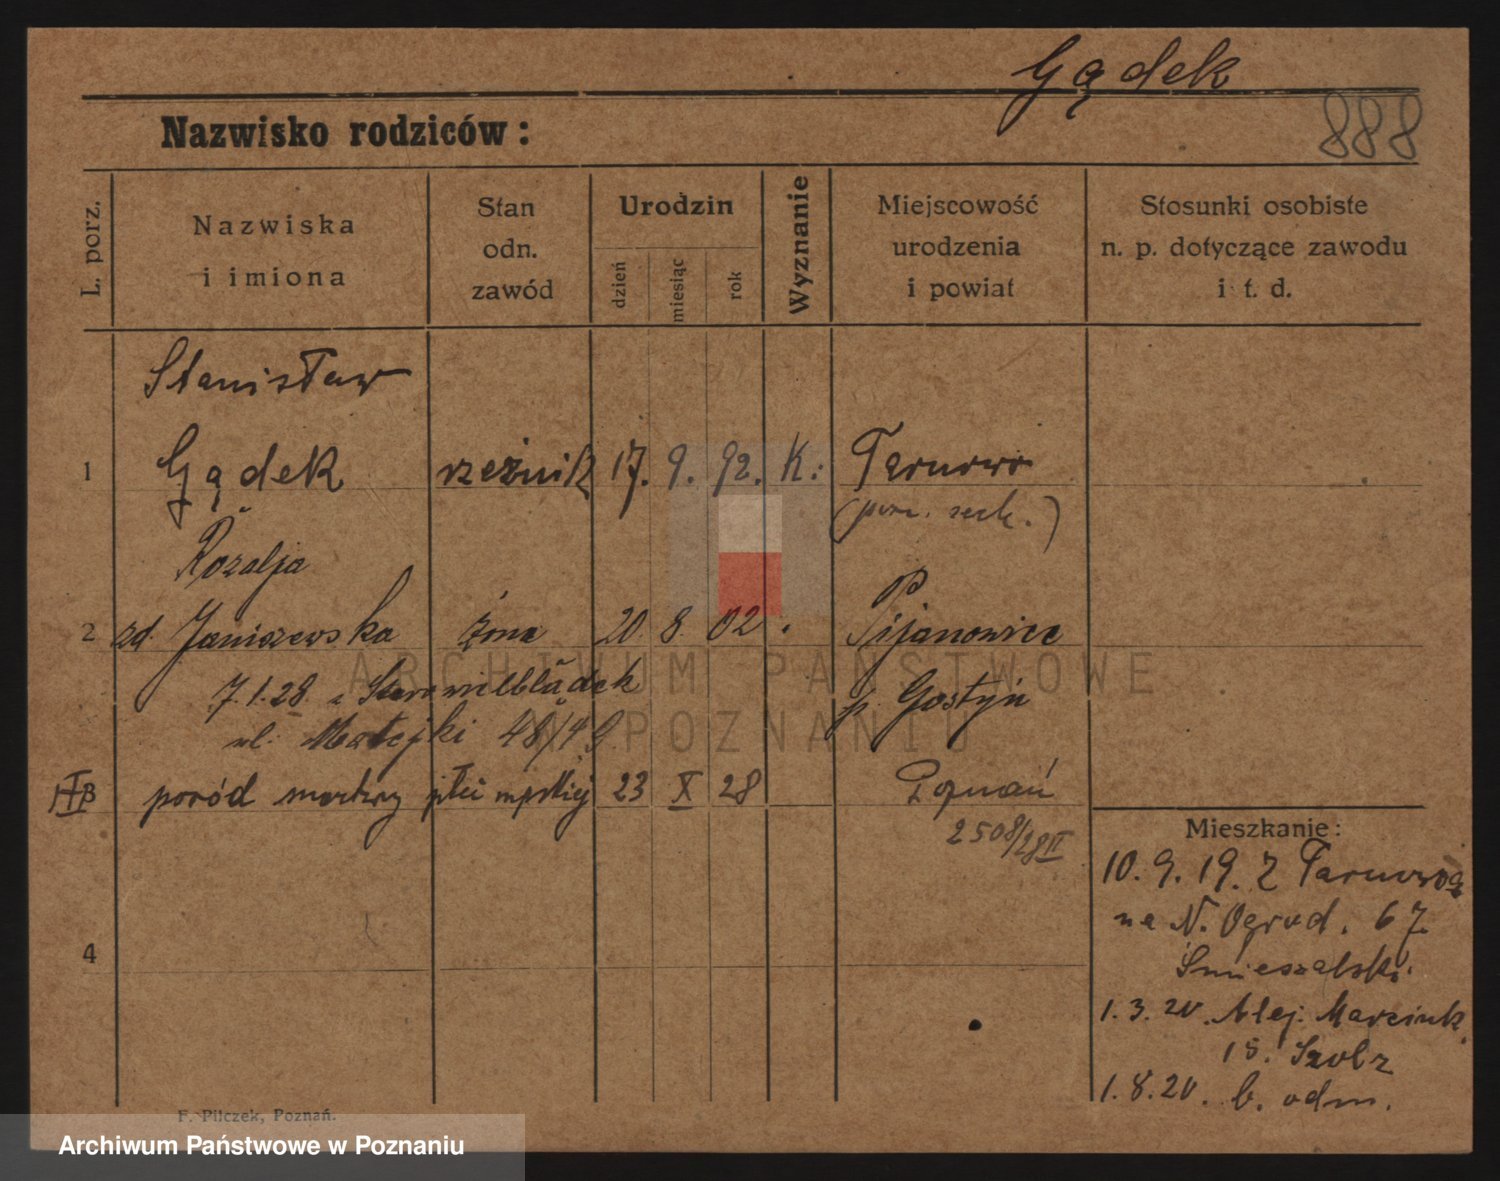 Gądek
888
Nazwisko rodziców:
L. porz.
Nazwiska
i imiona
Stan
odn.
zawód
Urodzin
dzień
miesiąc
rok
Wyznanie
Miejscowość
urodzenia
i powiat
Stosunki osobiste
n. p. dotyczące zawodu
i t. d.
Stanisław
1 Gądek rzeźnik 17. 9. 92. K. Tarnowo
Rozalja
2 zd. Janiszewska żona 20. 8. 02 Pijanowice
7.1.28 p. Gostyń
ul. Matejki 48/49
3 poród martwy płci męskiej 23 X 28 Poznań
2508/28 II
Mieszkanie:
10. 9. 19. z Tarnowa
na N. Ogrod. 67.
4
1. 3. 20. Alej. Marcink.
15. Szolz
1. 8. 20. b. odm.
F. Pilczek, Poznań.
ARCHIWUM PAŃSTWOWE
W POZNANIU
Archiwum Państwowe w Poznaniu